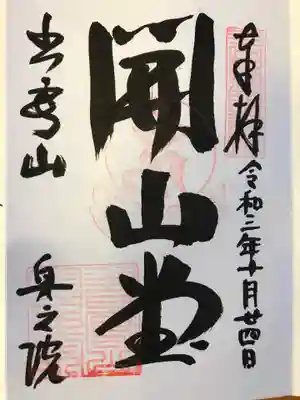 奉拝 令和三年十月廿四日
開山堂
書写山 奥之院